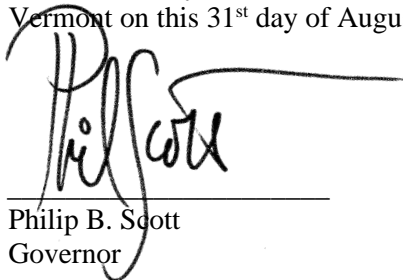 Vermont on this 31st day of Augu
Phil Scott
Philip B. Scott
Governor